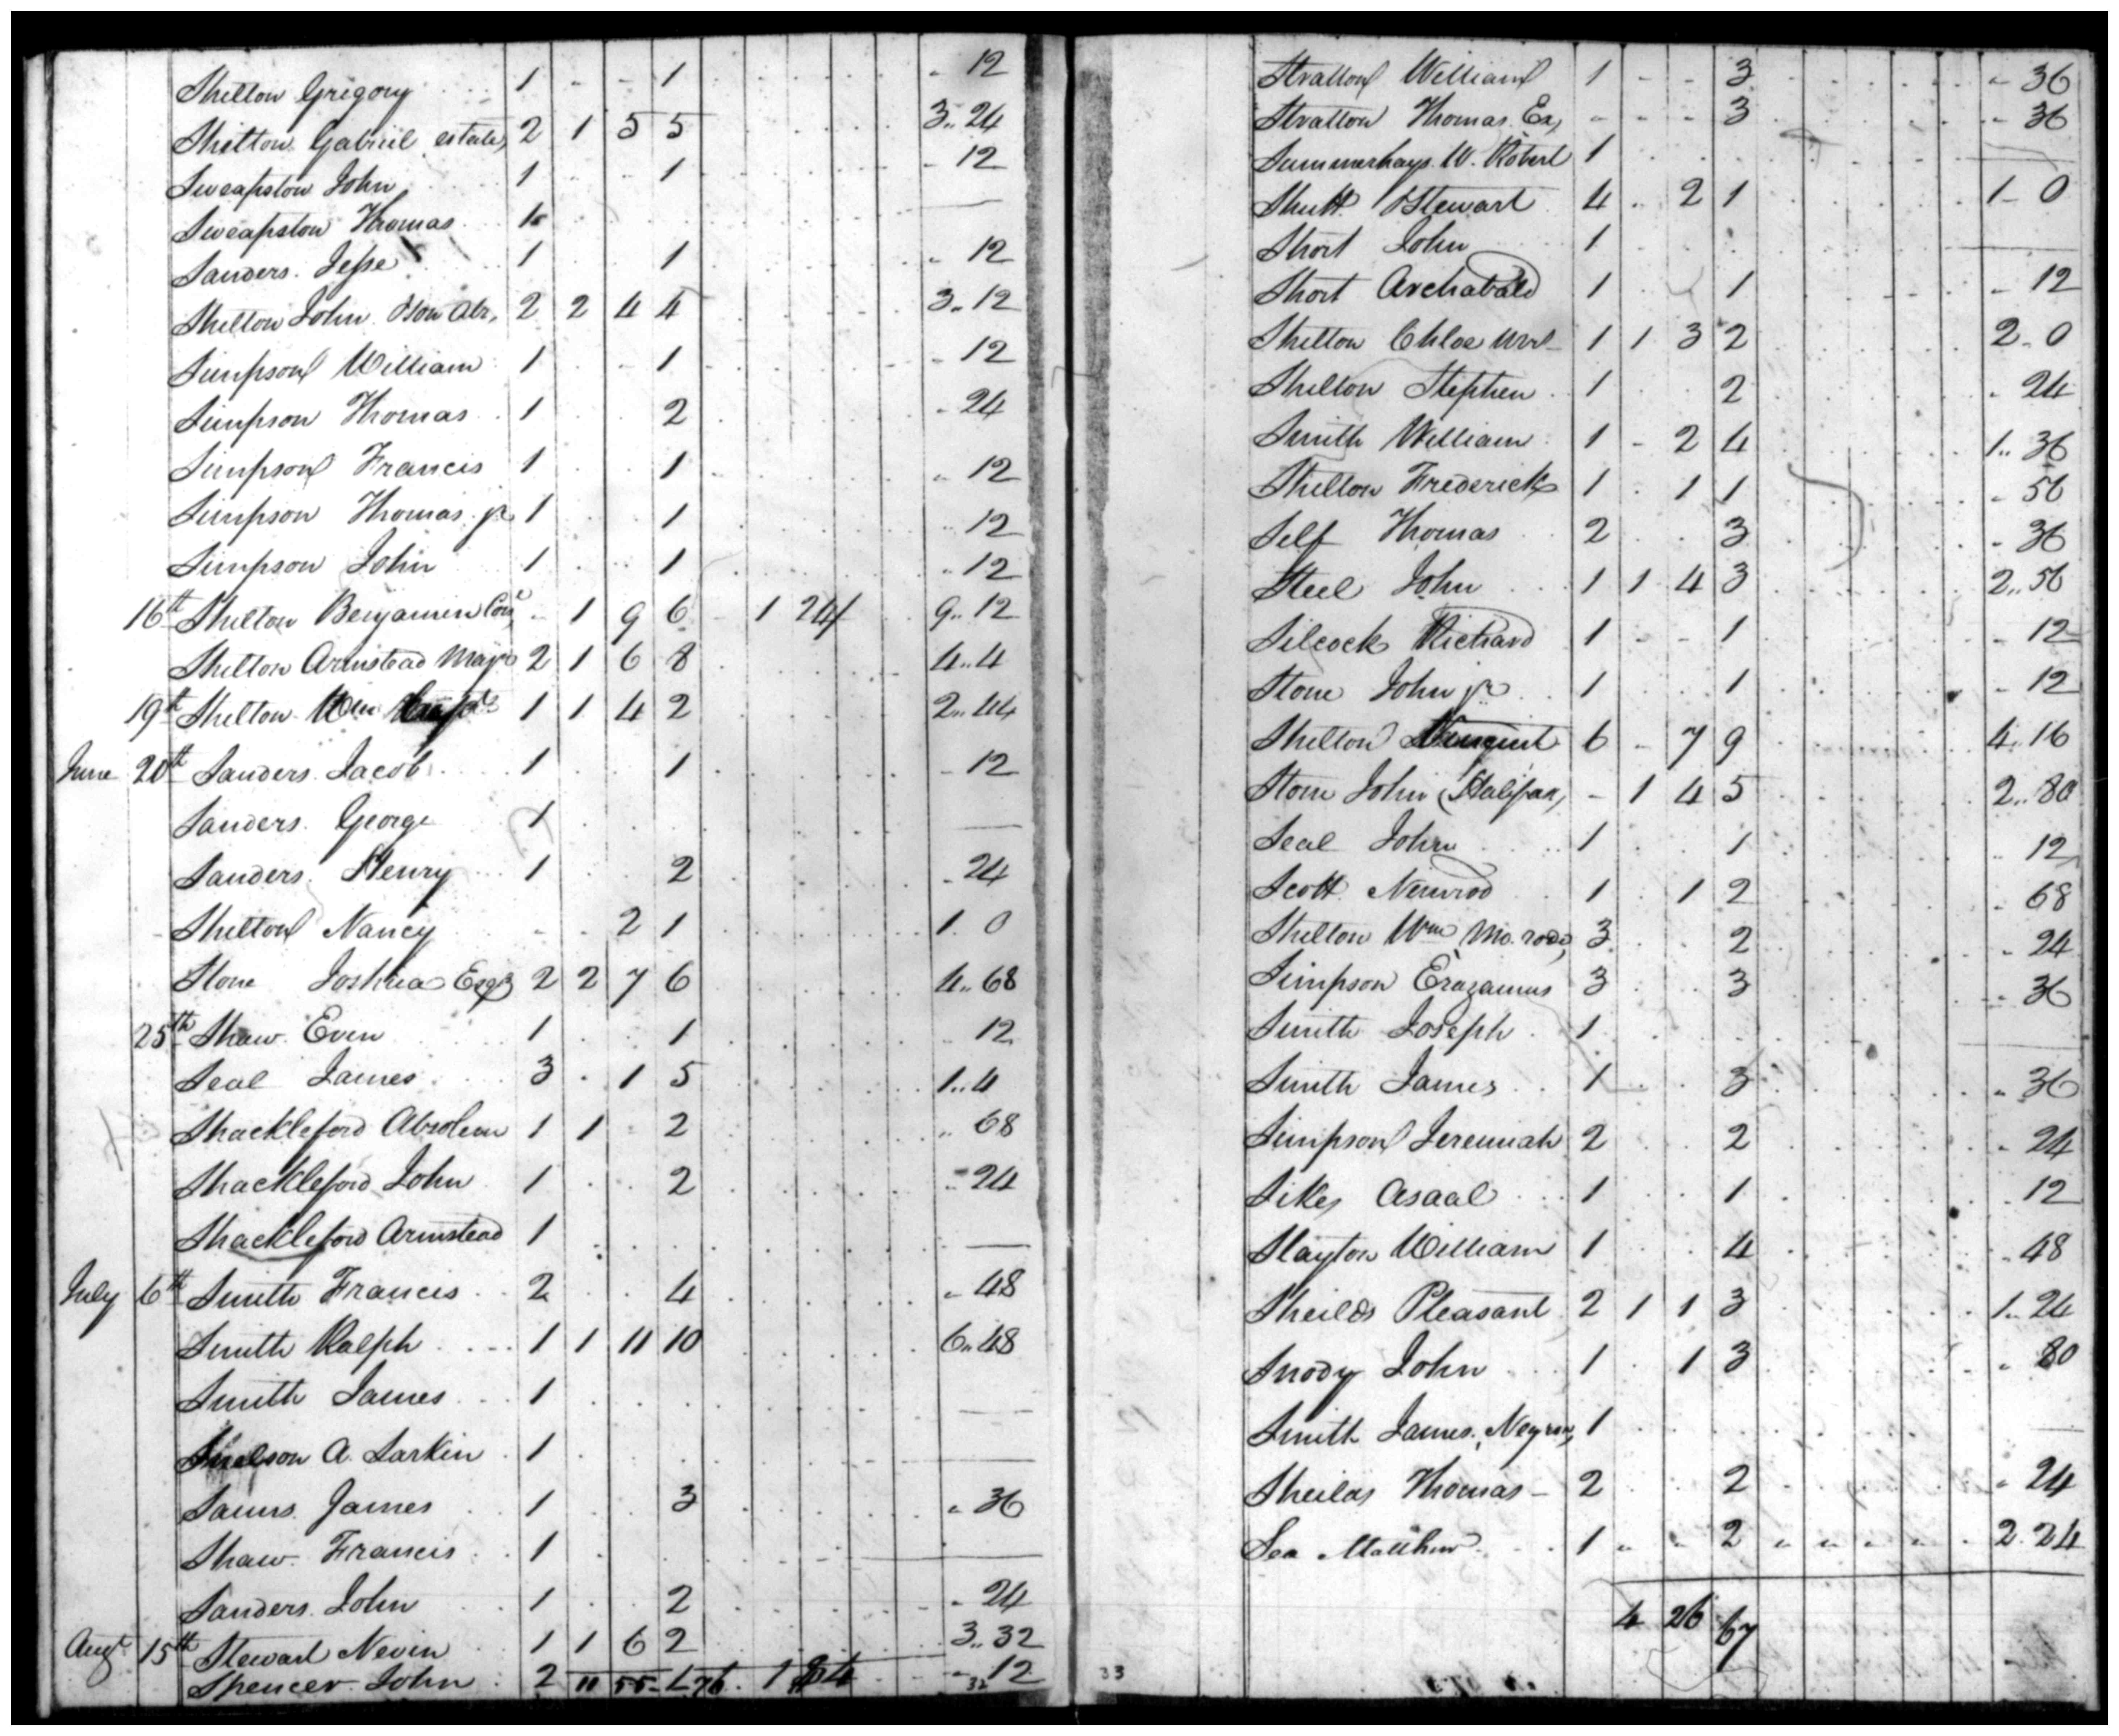 Shelton Gregory 1 - - 1 - 12
Shelton Gabriel estate, 2 1 5 5 3..24
Sweapston John 1 1 - 12
Sweapston Thomas 1
Sanders Jesse 1 1 - 12
Shelton John 2 2 4 4 3..12
Simpson William 1 - 1 - 12
Simpson Thomas 1 2 - 24
Simpson Francis 1 1 - 12
Simpson Thomas jr 1 1 - 12
Simpson John 1 1 - 12
16th Shelton Benjamin - 1 9 6 1 24 9..12
Shelton Armstead Majr 2 1 6 8 4..4
19th Shelton Wm 1 1 4 2 2..44
June 20th Sanders Jacob 1 1 - 12
Sanders George 1
Sanders Henry 1 2 - 24
Shelton Nancy - - 2 1 1. 0
Stone Joshua Esqr 2 2 7 6 4..68
25th Shaw Even 1 1 12
Seal James 3 . 1 5 1..4
Shackleford Absolem 1 1 2 68
Shackleford John 1 2 - 24
Shackleford Armstead 1
July 6th Smith Francis 2 4 - 48
Smith Ralph 1 1 11 10 6..48
Smith James 1
A. Larkin 1
Sams James 1 3 - 36
Shaw Francis 1
Sanders John 1 2 - 24
Augt 15th Stewart Nevin 1 1 6 2 3..32
Spencer John 2 11 55 1 76 1 - 12
32
Stratton William 1 - - 3 - 36
Stratton Thomas Ex, - - - 3 - 36
Summerhays W. Robert 1
Shutt Stewart 4 . 2 1 1 - 0
Short John 1
Short Archabald 1 1 - 12
Shelton Chloe 1 1 3 2 2 - 0
Shelton Stephen 1 2 - 24
Smith William 1 - 2 4 1..36
Shelton Frederick 1 . 1 1 - 56
Self Thomas 2 3 - 36
Steel John 1 1 4 3 2..56
Silcock Richard 1 - - 1 - 12
Stone John jr 1 1 - 12
Shelton 6 - 7 9 4..16
Stone John (Halifax, - 1 4 5 2..80
Seal John 1 1 12
Scott Nimrod 1 . 1 2 - 68
Shelton Wm Mo. road, 3 2 - 24
Simpson Erazamus 3 3 - 36
Smith Joseph 1
Smith James 1 3 - 36
Simpson Jeremiah 2 2 - 24
Sikes Asaal 1 1 12
Slayton William 1 4 - 48
Sheilds Pleasant 2 1 1 3 1..24
Snody John 1 . 1 3 - 80
Smith James, 1
Sheilds Thomas - 2 2 - 24
Sea Matthew 1 2 2.24
4 26 67
33